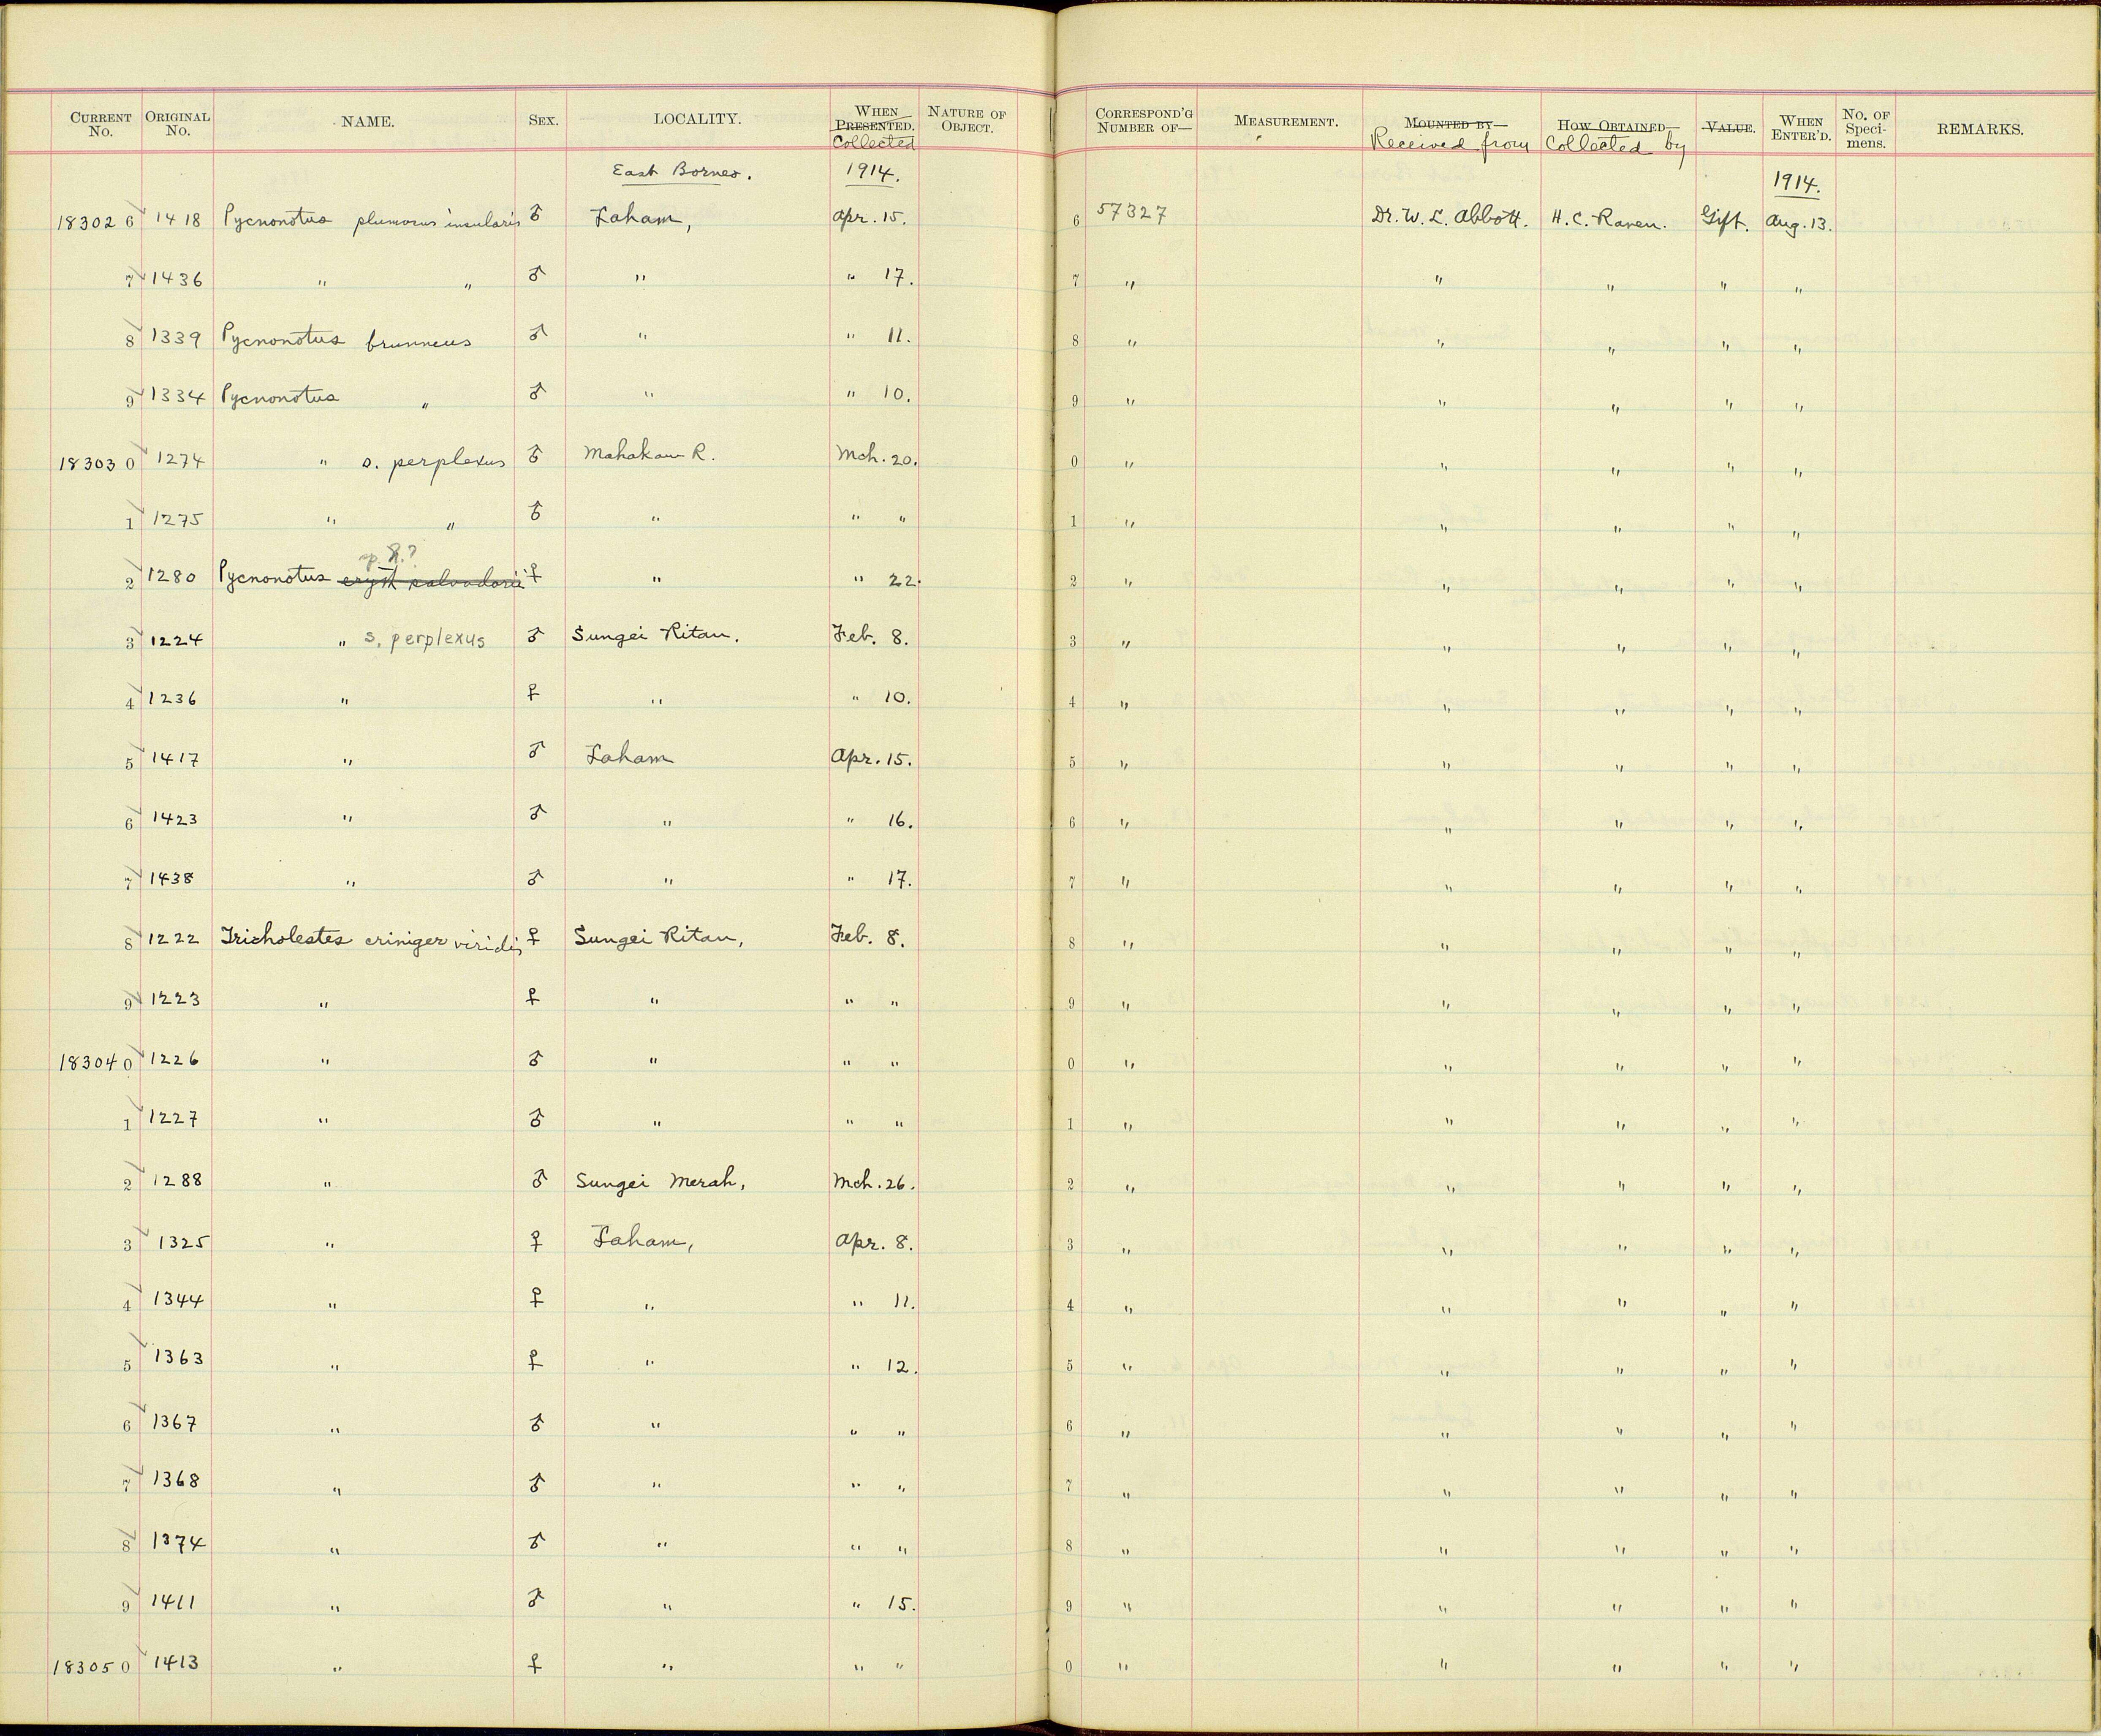 CURRENT No. ORIGINAL No. NAME. SEX. LOCALITY. WHEN PRESENTED. Collected NATURE OF OBJECT. CORRESPOND'G NUMBER OF— MEASUREMENT. MOUNTED BY— Received from HOW OBTAINED— Collected by VALUE. WHEN ENTER'D. No. OF Speci- mens. REMARKS.
East Borneo. 1914. 1914.
18302 6 1418 Pycnonotus plumosus insularis ♂ Laham, Apr. 15. 6 57327 Dr. W. L. Abbott. H. C. Raven. Gift. Aug. 13.
7 1436 " " ♂ " " 17. 7 " " " " "
8 1339 Pycnonotus brunneus ♂ " " 11. 8 " " " " "
9 1334 Pycnonotus " ♂ " " 10. 9 " " " " "
18303 0 1274 " s. perplexus ♂ Mahakam R. Mch. 20. 0 " " " " "
1 1275 " " ♂ " " " 1 " " " " "
sp. ?
2 1280 Pycnonotus eryth salvadorii ♀ " " 22. 2 " " " " "
3 1224 " s. perplexus ♂ Sungei Ritan. Feb. 8. 3 " " " " "
4 1236 " ♀ " " 10. 4 " " " " "
5 1417 " ♂ Laham Apr. 15. 5 " " " " "
6 1423 " ♂ " " 16. 6 " " " " "
7 1438 " ♂ " " 17. 7 " " " " "
8 1222 Tricholestes criniger viridis ♀ Sungei Ritan, Feb. 8. 8 " " " " "
9 1223 " ♀ " " " 9 " " " " "
18304 0 1226 " ♂ " " " 0 " " " " "
1 1227 " ♂ " " " 1 " " " " "
2 1288 " ♂ Sungei Merah, Mch. 26. 2 " " " " "
3 1325 " ♀ Laham, Apr. 8. 3 " " " " "
4 1344 " ♀ " " 11. 4 " " " " "
5 1363 " ♀ " " 12. 5 " " " " "
6 1367 " ♂ " " " 6 " " " " "
7 1368 " ♂ " " " 7 " " " " "
8 1374 " ♂ " " " 8 " " " " "
9 1411 " ♂ " " 15. 9 " " " " "
18305 0 1413 " ♀ " " " 0 " " " " "